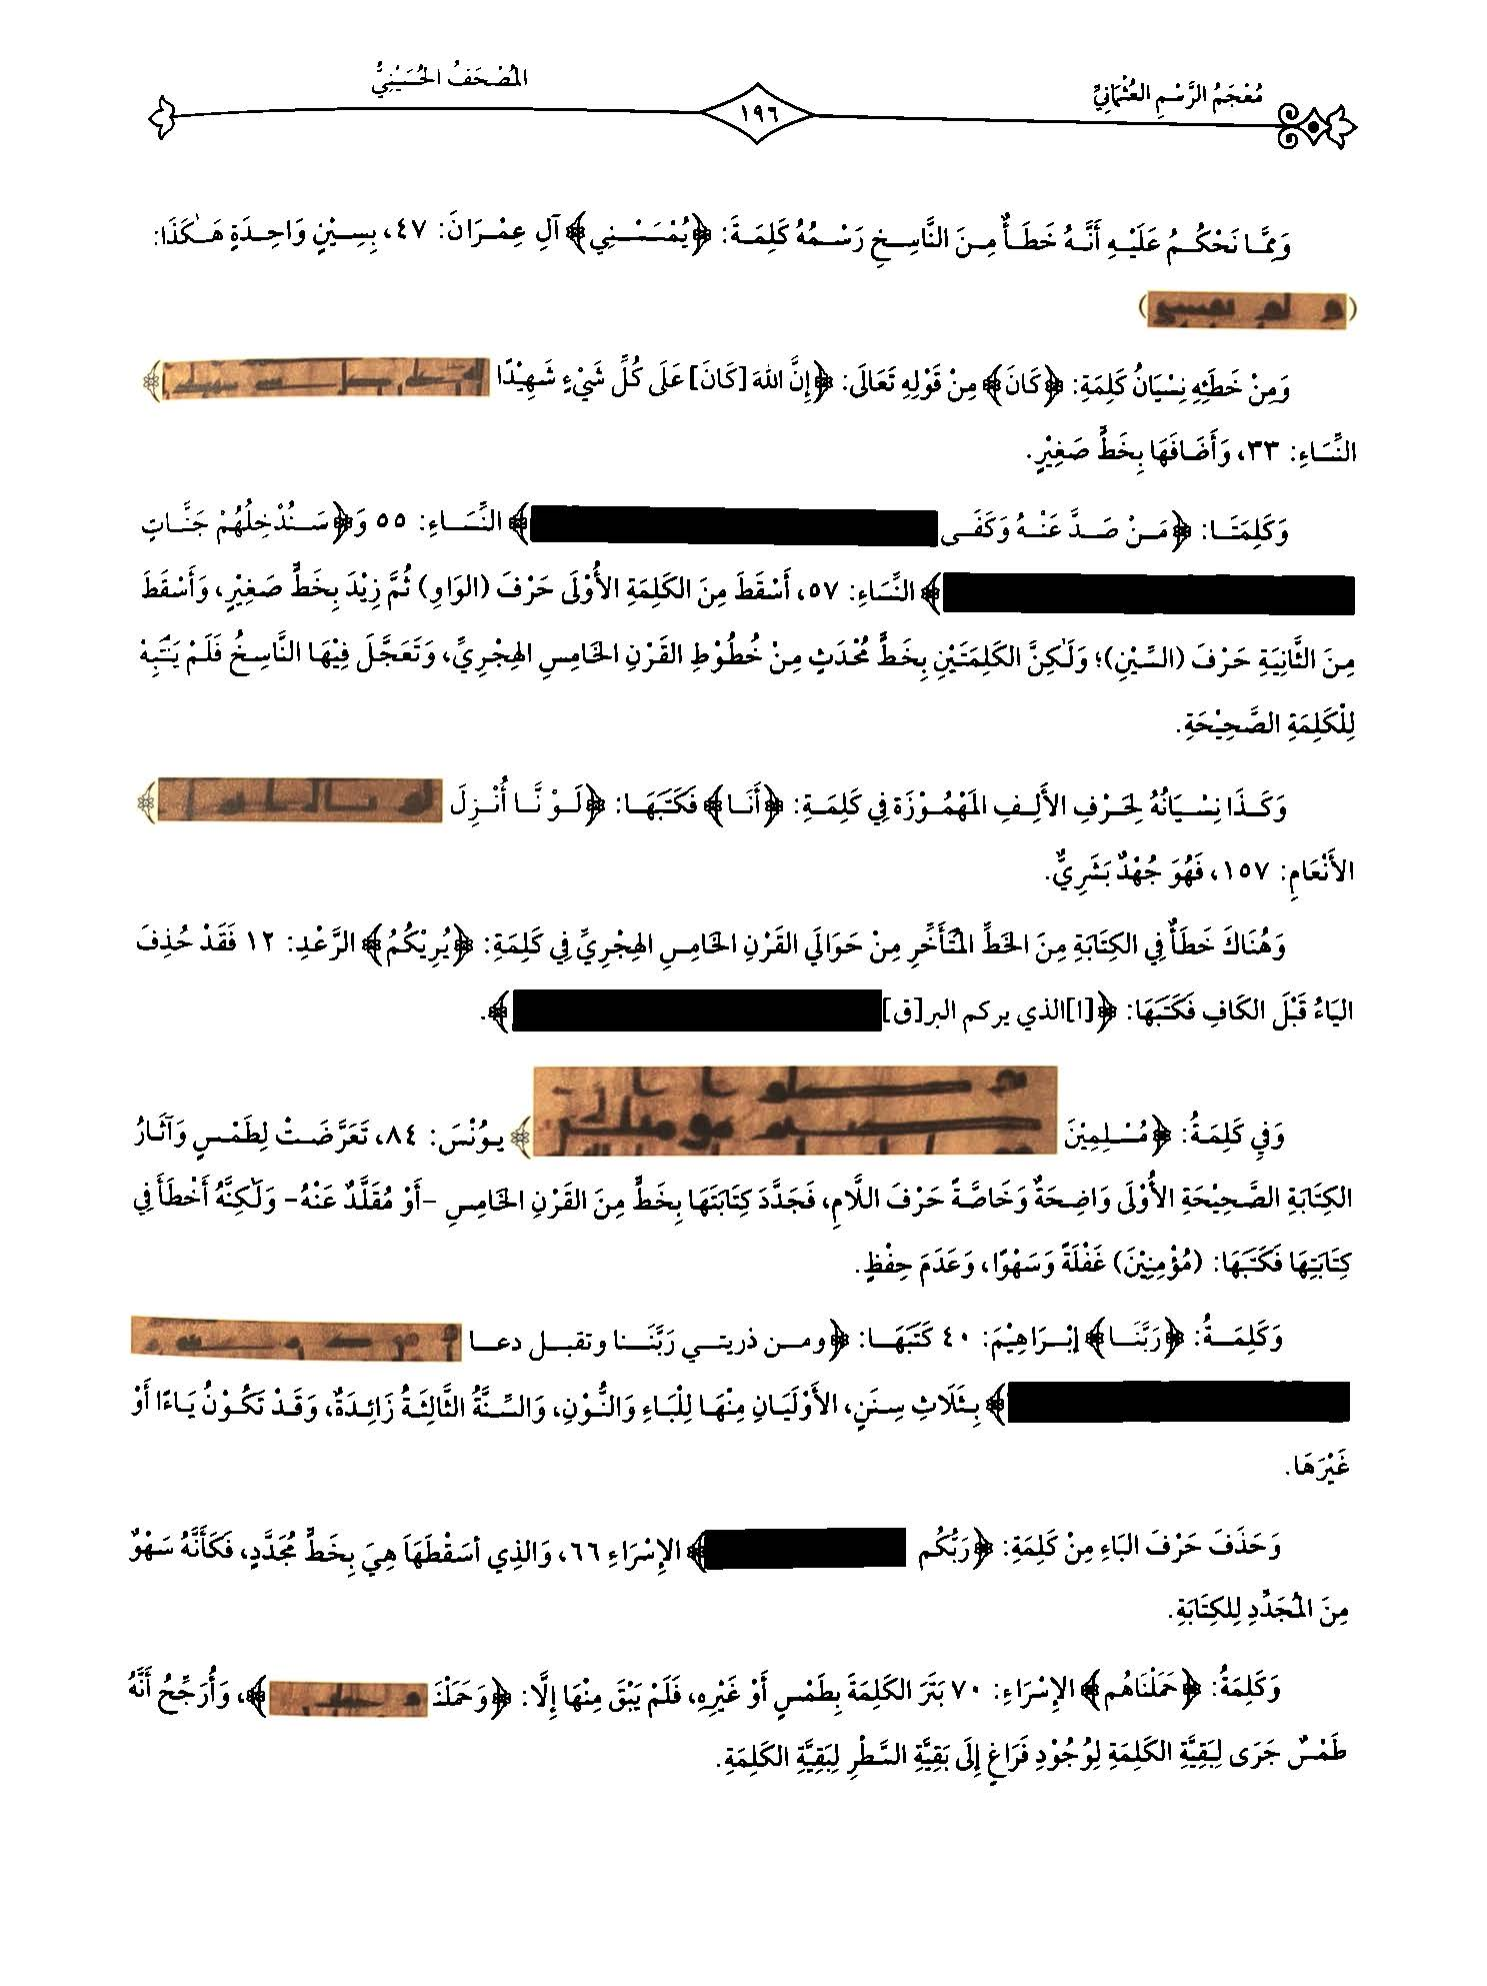 مُعْجَمُ الرَّسْمِ العُثْمَانِيِّ
١٩٦
المُصْحَفُ الحُسَيْنِيُّ
وَمِمَّا نَحْكُمُ عَلَيْهِ أَنَّهُ خَطَأٌ مِنَ النَّاسِخِ رَسْمُهُ كَلِمَةَ: ﴿يُمْسَسْنِي﴾ آلِ عِمْرَانَ: ٤٧، بِسِيْنٍ وَاحِدَةٍ هَكَذَا:
( )
وَمِنْ خَطَئِهِ نِسْيَانُ كَلِمَةِ: ﴿كَانَ﴾ مِنْ قَوْلِهِ تَعَالَى: ﴿إِنَّ اللهَ [كَانَ] عَلَى كُلِّ شَيْءٍ شَهِيْدًا ﴾
النِّسَاءِ: ٣٣، وَأَضَافَهَا بِخَطٍّ صَغِيْرٍ.
وَكَلِمَتَا: ﴿مَنْ صَدَّ عَنْهُ وَكَفَى ﴾ النِّسَاءِ: ٥٥ وَ﴿سَنُدْخِلُهُمْ جَنَّاتٍ
﴾ النِّسَاءِ: ٥٧، أَسْقَطَ مِنَ الكَلِمَةِ الأُوْلَى حَرْفَ (الوَاوِ) ثُمَّ زِيْدَ بِخَطٍّ صَغِيْرٍ، وَأَسْقَطَ
مِنَ الثَّانِيَةِ حَرْفَ (السِّيْنِ)؛ وَلَكِنَّ الكَلِمَتَيْنِ بِخَطٍّ مُحْدَثٍ مِنْ خُطُوْطِ القَرْنِ الخَامِسِ الهِجْرِيِّ، وَتَعَجَّلَ فِيْهَا النَّاسِخُ فَلَمْ يَنْتَبِهْ
لِلْكَلِمَةِ الصَّحِيْحَةِ.
وَكَذَا نِسْيَانُهُ لِحَرْفِ الأَلِفِ المَهْمُوْزَة فِي كَلِمَةِ: ﴿أَنَا﴾ فَكَتَبَهَا: ﴿لَوْ نَّا أُنْزِلَ ﴾
الأَنْعَامِ: ١٥٧، فَهُوَ جُهْدٌ بَشَرِيٌّ.
وَهُنَاكَ خَطَأٌ فِي الكِتَابَةِ مِنَ الخَطِّ المُتَأَخِّرِ مِنْ حَوَالَي القَرْنِ الخَامِسِ الهِجْرِيِّ فِي كَلِمَةِ: ﴿يُرِيْكُمُ﴾ الرَّعْدِ: ١٢ فَقَدْ حُذِفَ
اليَاءُ قَبْلَ الكَافِ فَكَتَبَهَا: ﴿[ا]الذي يركم البر[ق] ﴾.
وَفِي كَلِمَةُ: ﴿مُسْلِمِيْنَ ﴾ يُوْنُسَ: ٨٤، تَعَرَّضَتْ لِطَمْسٍ وَآثَارُ
الكِتَابَةِ الصَّحِيْحَةِ الأُوْلَى وَاضِحَةٌ وَخَاصَّةً حَرْفَ اللَّامِ، فَجَدَّدَ كِتَابَتَهَا بِخَطٍّ مِنَ القَرْنِ الخَامِسِ -أَوْ مُقَلَّدٌ عَنْهُ- وَلَكِنَّهُ أَخْطَأَ فِي
كِتَابَتِهَا فَكَتَبَهَا: (مُؤْمِنِيْنَ) غَفْلَةً وَسَهْوًا، وَعَدَمَ حِفْظٍ.
وَكَلِمَةُ: ﴿رَبَّنَا﴾ إِبْرَاهِيْمَ: ٤٠ كَتَبَهَا: ﴿ومن ذريتي رَبَّنَا وتقبل دعا
﴾ بِثَلَاثِ سِنَنٍ، الأَوْلَيَانِ مِنْهَا لِلْبَاءِ وَالنُّوْنِ، وَالسِّنَّةُ الثَّالِثَةُ زَائِدَةٌ، وَقَدْ تَكُوْنُ يَاءًا أَوْ
غَيْرَهَا.
وَحَذَفَ حَرْفَ البَاءِ مِنْ كَلِمَةِ: ﴿رَبُّكُم ﴾ الإِسْرَاءِ ٦٦، وَالذِي أسَقْطَهَا هِيَ بِخَطٍّ مُجَدَّدٍ، فَكَأَنَّهُ سَهْوٌ
مِنَ المُجَدِّدِ لِلكِتَابَةِ.
وَكَلِمَةُ: ﴿حَمَلْنَاهُم﴾ الإِسْرَاءِ: ٧٠ بَتَرَ الكَلِمَةَ بِطَمْسٍ أَوْ غَيْرِهِ، فَلَمْ يَبْقَ مِنْهَا إِلَّا: ﴿وَحَمَلْنَ ﴾، وَأُرَجِّحُ أَنَّهُ
طَمْسٌ جَرَى لِبَقِيَّةِ الكَلِمَةِ لِوُجُوْدِ فَرَاغٍ إِلَى بَقِيَّةِ السَّطْرِ لِبَقِيَّةِ الكَلِمَةِ.